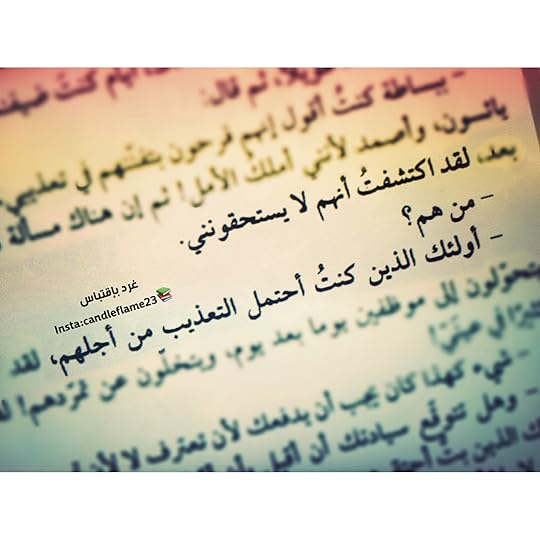 ثم قال:
- ببساطة كنتُ أقول إنهم فرحون بتفنّنهم في تعذيبي
يائسون، وأصمد لأنني أملكُ الأمل! ثم إن هناك مسألة
بعد، لقد اكتشفتُ أنهم لا يستحقونني.
- من هم؟
- أولئك الذين كنتُ أحتمل التعذيب من أجلهم، لقد
يتحوّلون إلى موظفين يوما بعد يوم، ويتخلّون عن تمرّدهم!
في عينيّ!
- شيء كهذا كان يجب أن يدفعك لأن تعترف لا لأن
- وهل تتوقّع سيادتك أن أقبل
الذين
غرد بإقتباس
Insta:candleflame23